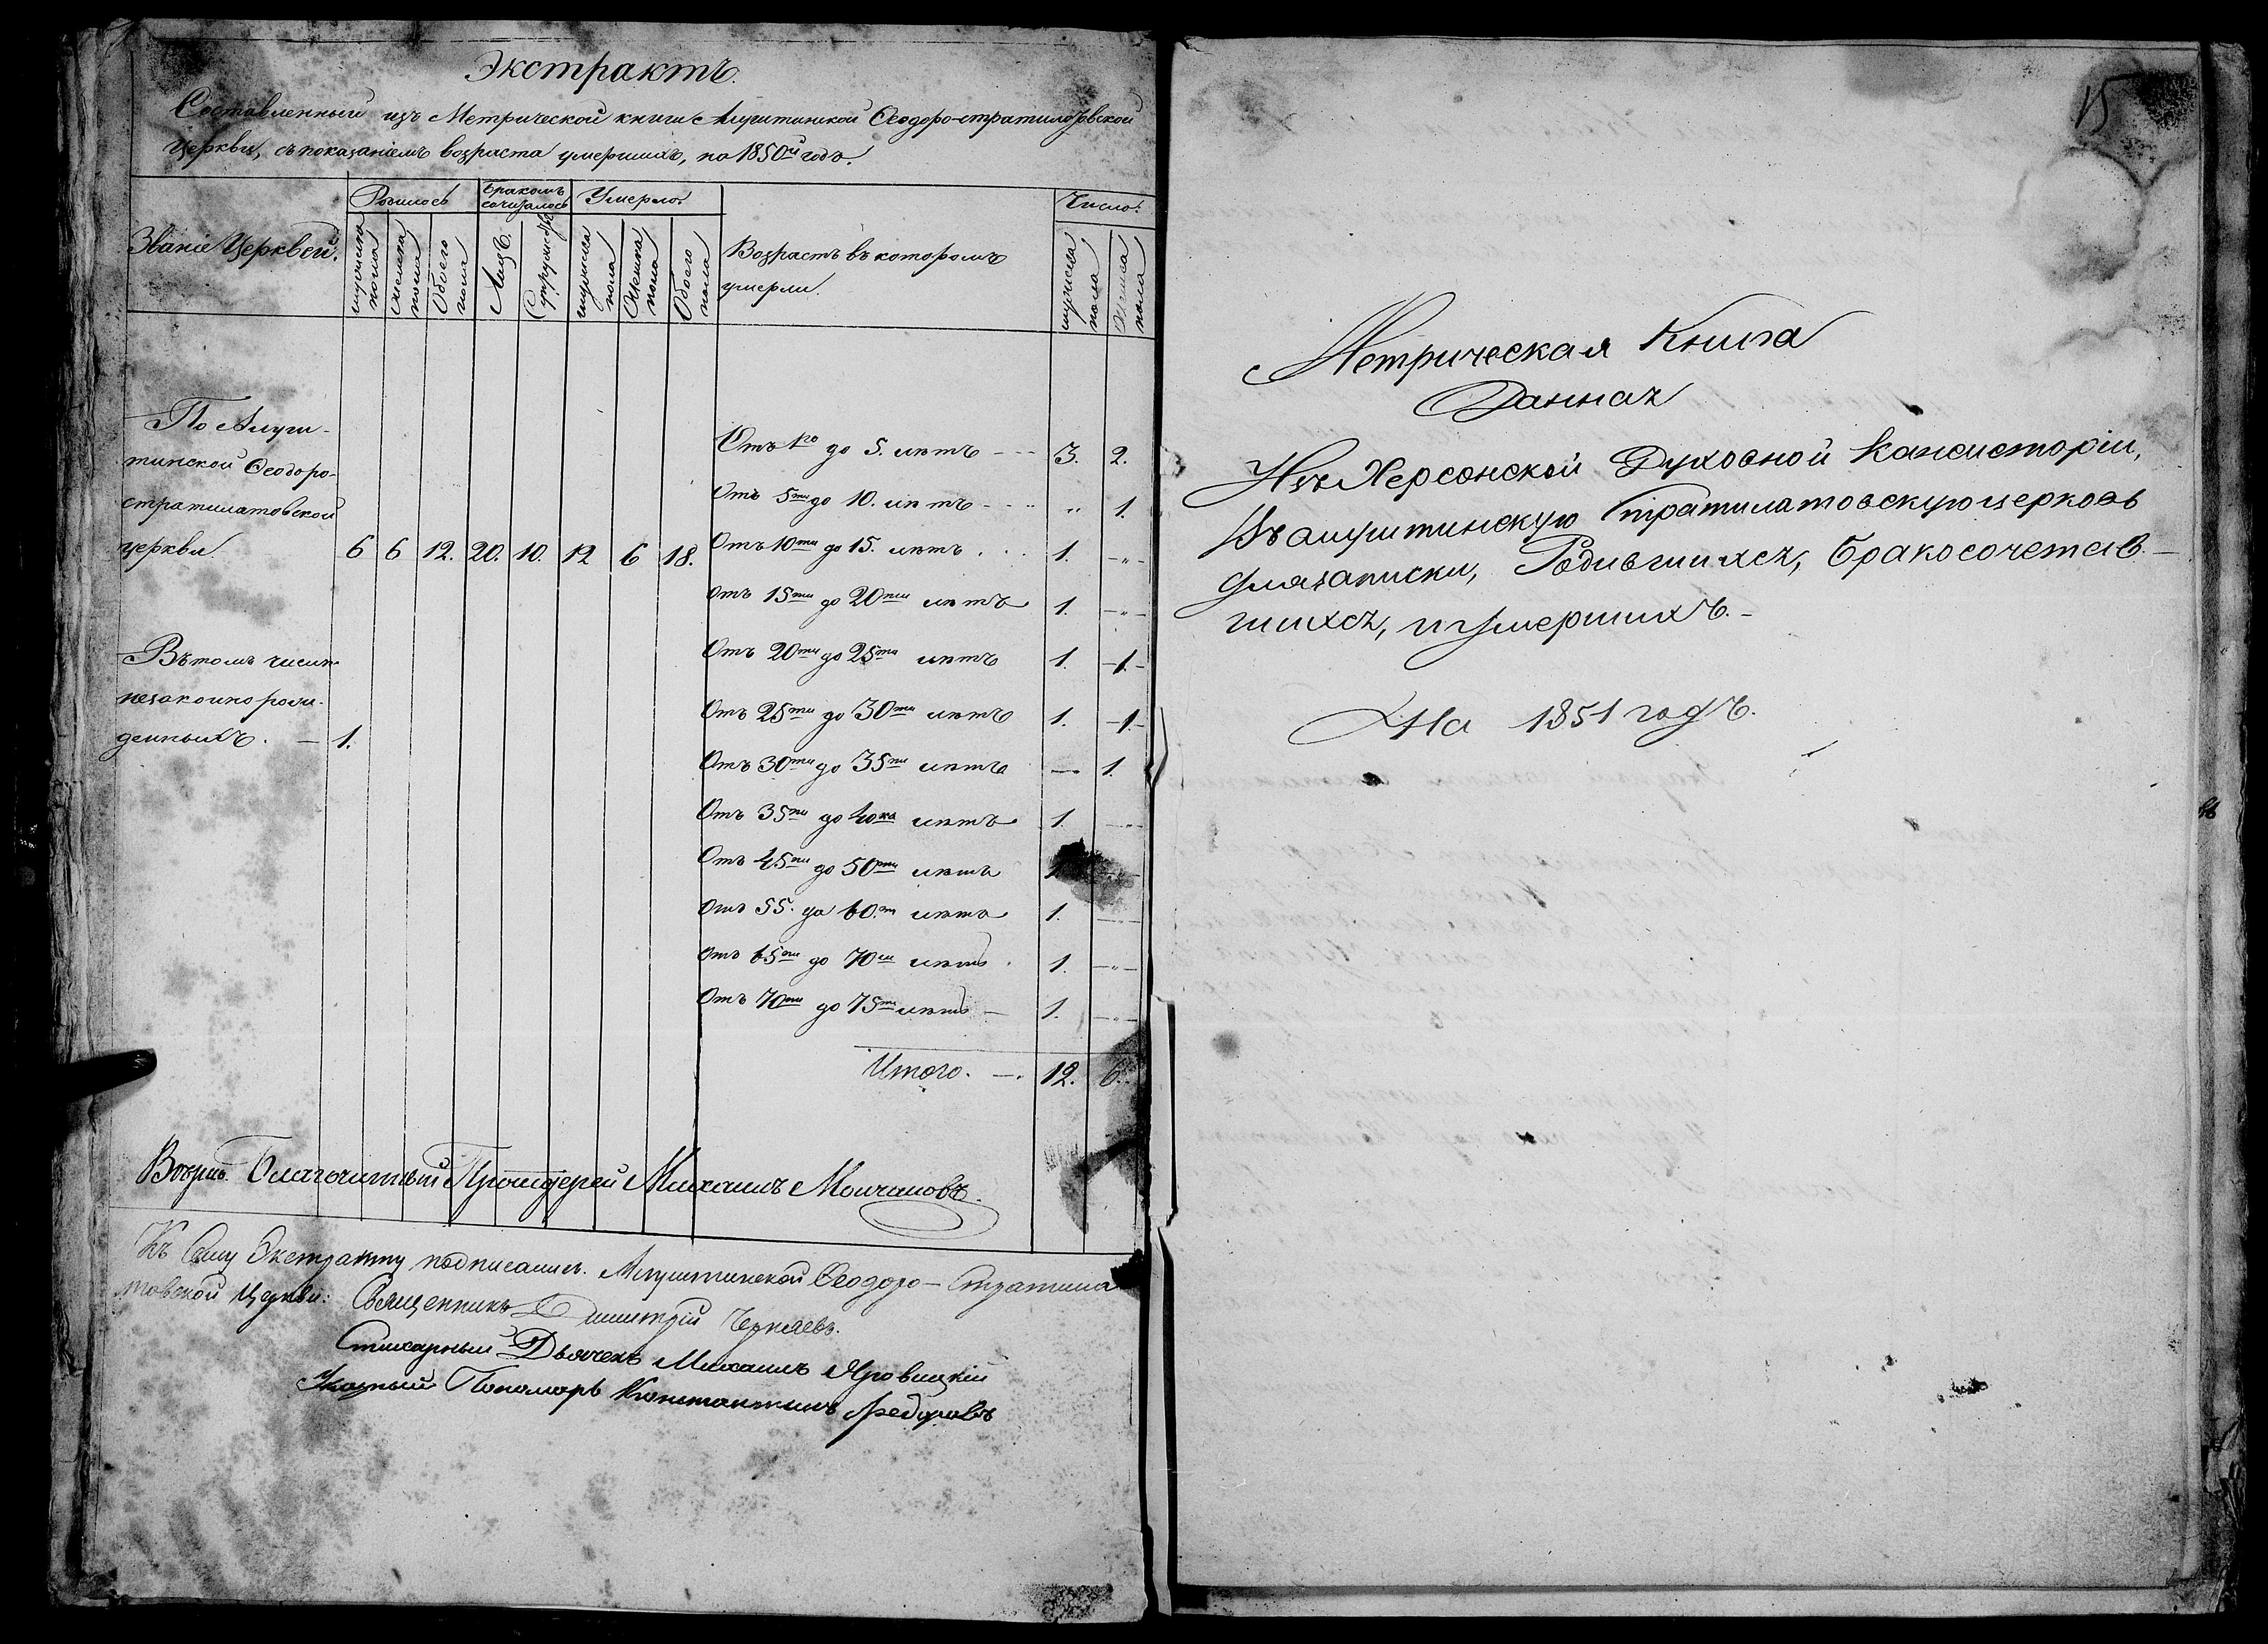 Экстрактъ.
Составленный изъ Метрической книги Алуштинской Ѳеодоро-стратилатовской
Церкви, съ показаніемъ возраста умершихъ, на 1850й годъ.
Званіе Церквей.
Родилось
Бракомъ сочеталось
Умерло.
Возрастъ въ которомъ умерли.
Число:
мужеска пола
женска пола
Обоего пола
Лицъ.
Супружествъ
мужеска пола
Женска пола
Обоего пола
мужеска пола
Женска пола
По Алуш-
тинской Ѳеодоро-
стратилатовской
церкви 6 6 12. 20. 10. 12 6 18.
Въ томъ числѣ
незаконно рож-
денныхъ. — 1.
Отъ 1го до 5. лѣтъ - - - 3. 2.
Отъ 5ти до 10. лѣтъ - - - „ 1.
Отъ 10ти до 15. лѣтъ . . . 1. - „ -
Отъ 15ти до 20ти лѣтъ 1. - „ -
Отъ 20ти до 25ти лѣтъ 1. - 1. -
Отъ 25ти до 30ти лѣтъ 1. - 1. -
Отъ 30ти до 35ти лѣтъ — 1.
Отъ 35ти до 40ка лѣтъ 1. - „ -
Отъ 45ти до 50ти лѣтъ 1
Отъ 55. до 60.ти лѣтъ 1. - „ -
Отъ 65ти до 70ти лѣтъ . 1. - „ -
Отъ 70ти до 75ти лѣтъ — 1. - „ -
Итого. —. 12. 6.
Благочинный Протоіерей Михаилъ Молчановъ.
Къ сему Экстракту подписались. Алуштинской Ѳеодоро-Стратила
товской Церкви: Священникъ Димитрій Черняевъ.
Стихарный Дьячекъ Михаилъ Яровицкій
Указный Пономарь Константинъ Федоровъ
15
Метрическая Книга
Данная
Изъ Херсонской Духовной Консисторіи,
Въ алуштинскую Стратилатовскую церковь
для записки, Родившихся, бракосочетав-
шихся, и умершихъ. -
На 1851 годъ.